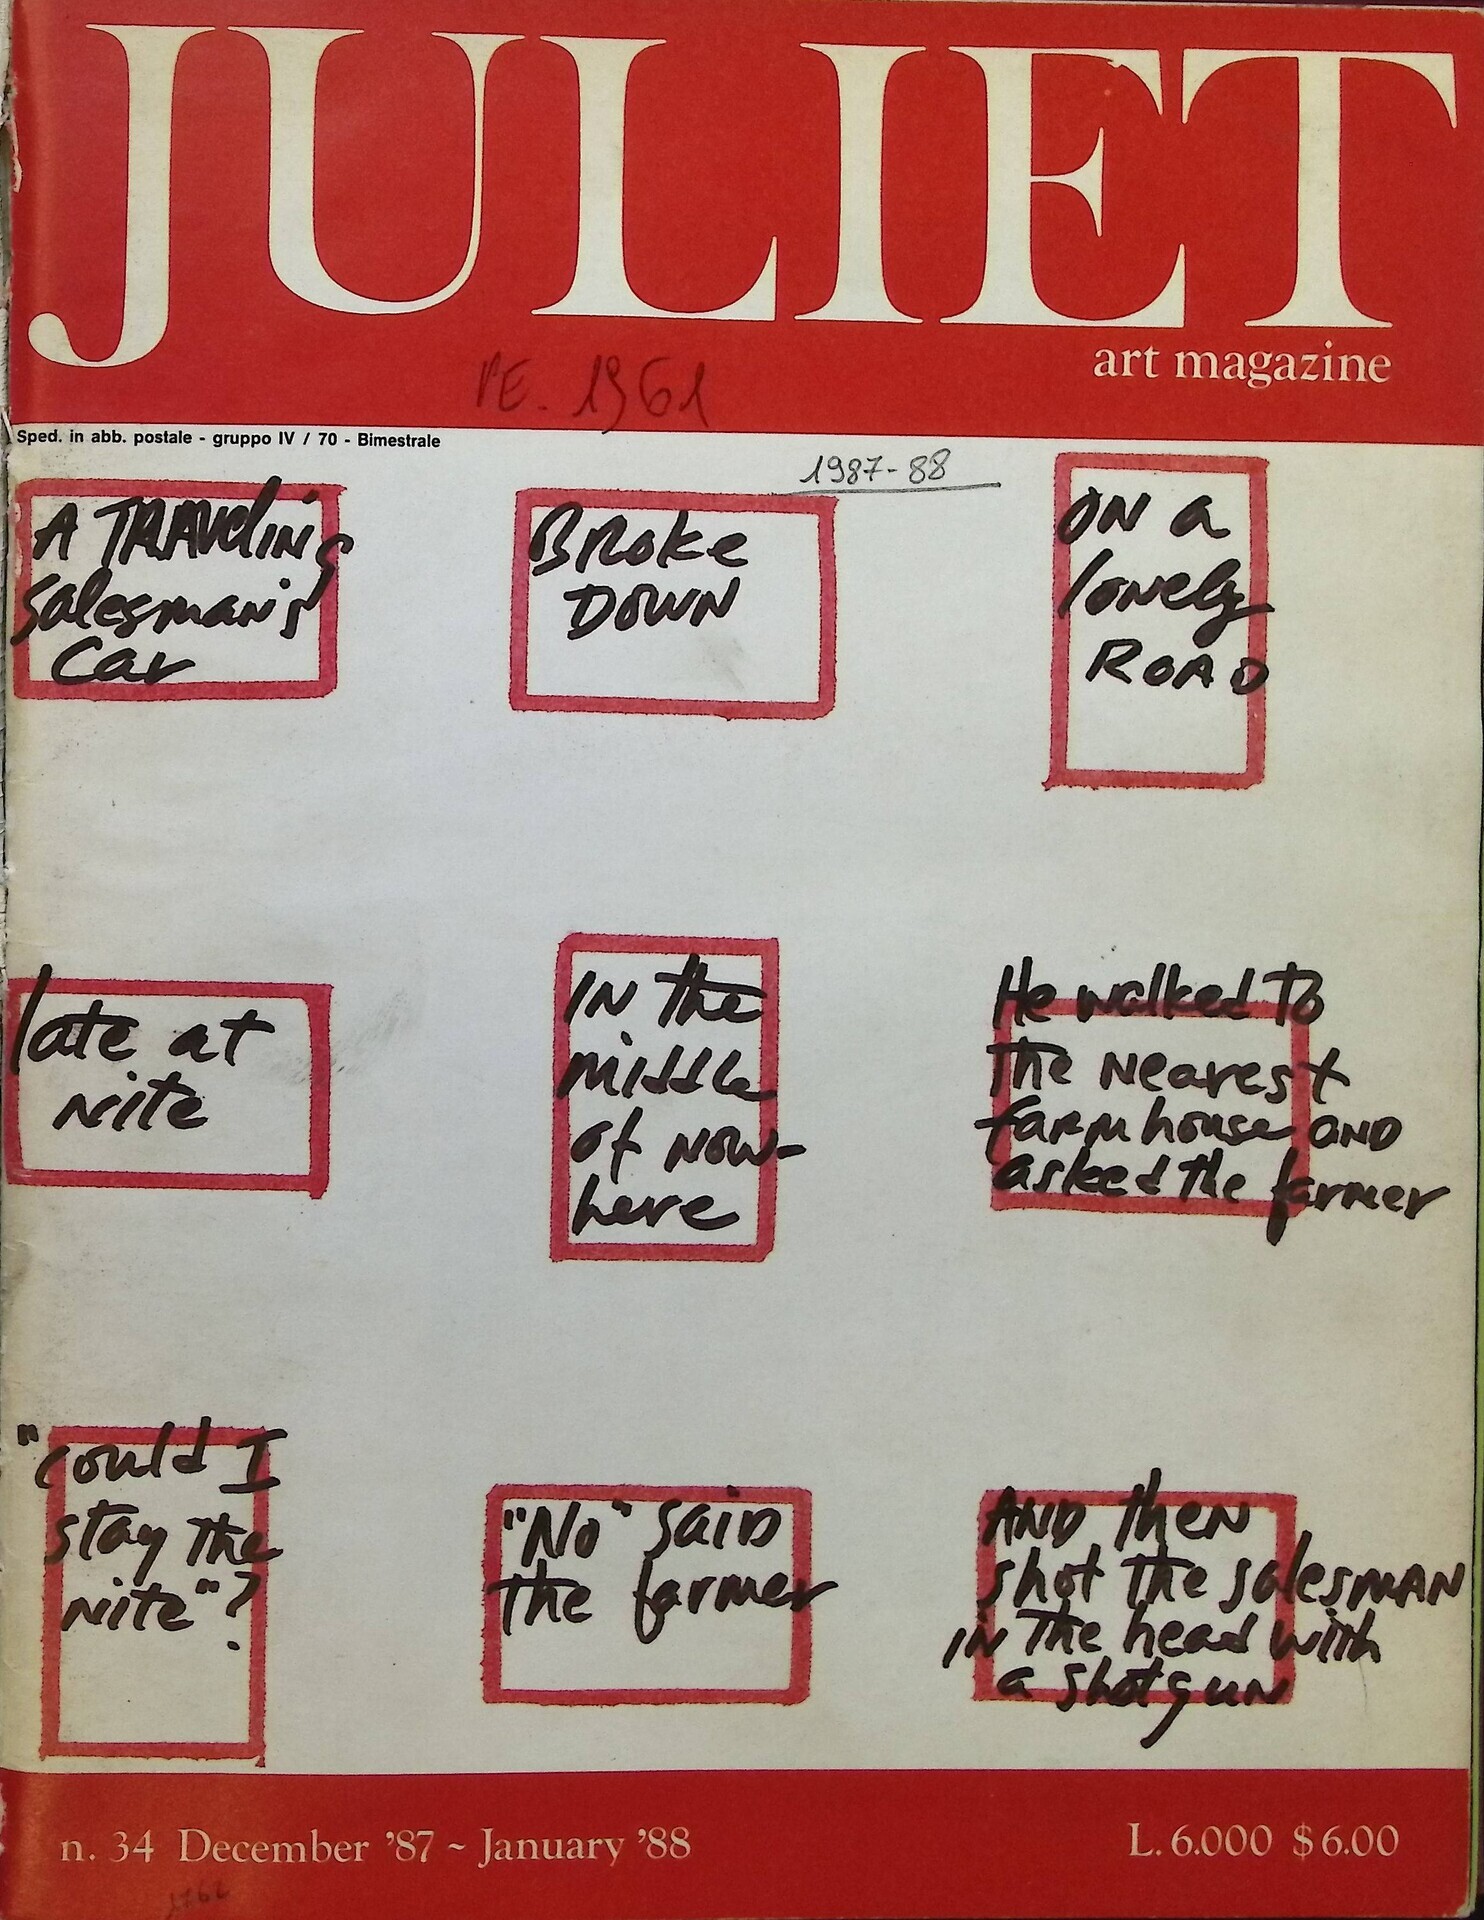 JULIET
art magazine
PE. 1961
Sped. in abb. postale - gruppo IV / 70 - Bimestrale
1987-88
A TRAVeliNG
salesman's
Car
BRoke
DOWN
ON a
lonely
ROAD
late at
nite
IN the
middle
of NOW-
here
He walked to
the Nearest
farmhouse AND
asked the farmer
"could I
stay the
nite"?
"No" said
the farmer
AND theN
shot the salesmAN
iN the head with
a shotguN
n. 34 December '87 ~ January '88
L. 6.000 $ 6.00